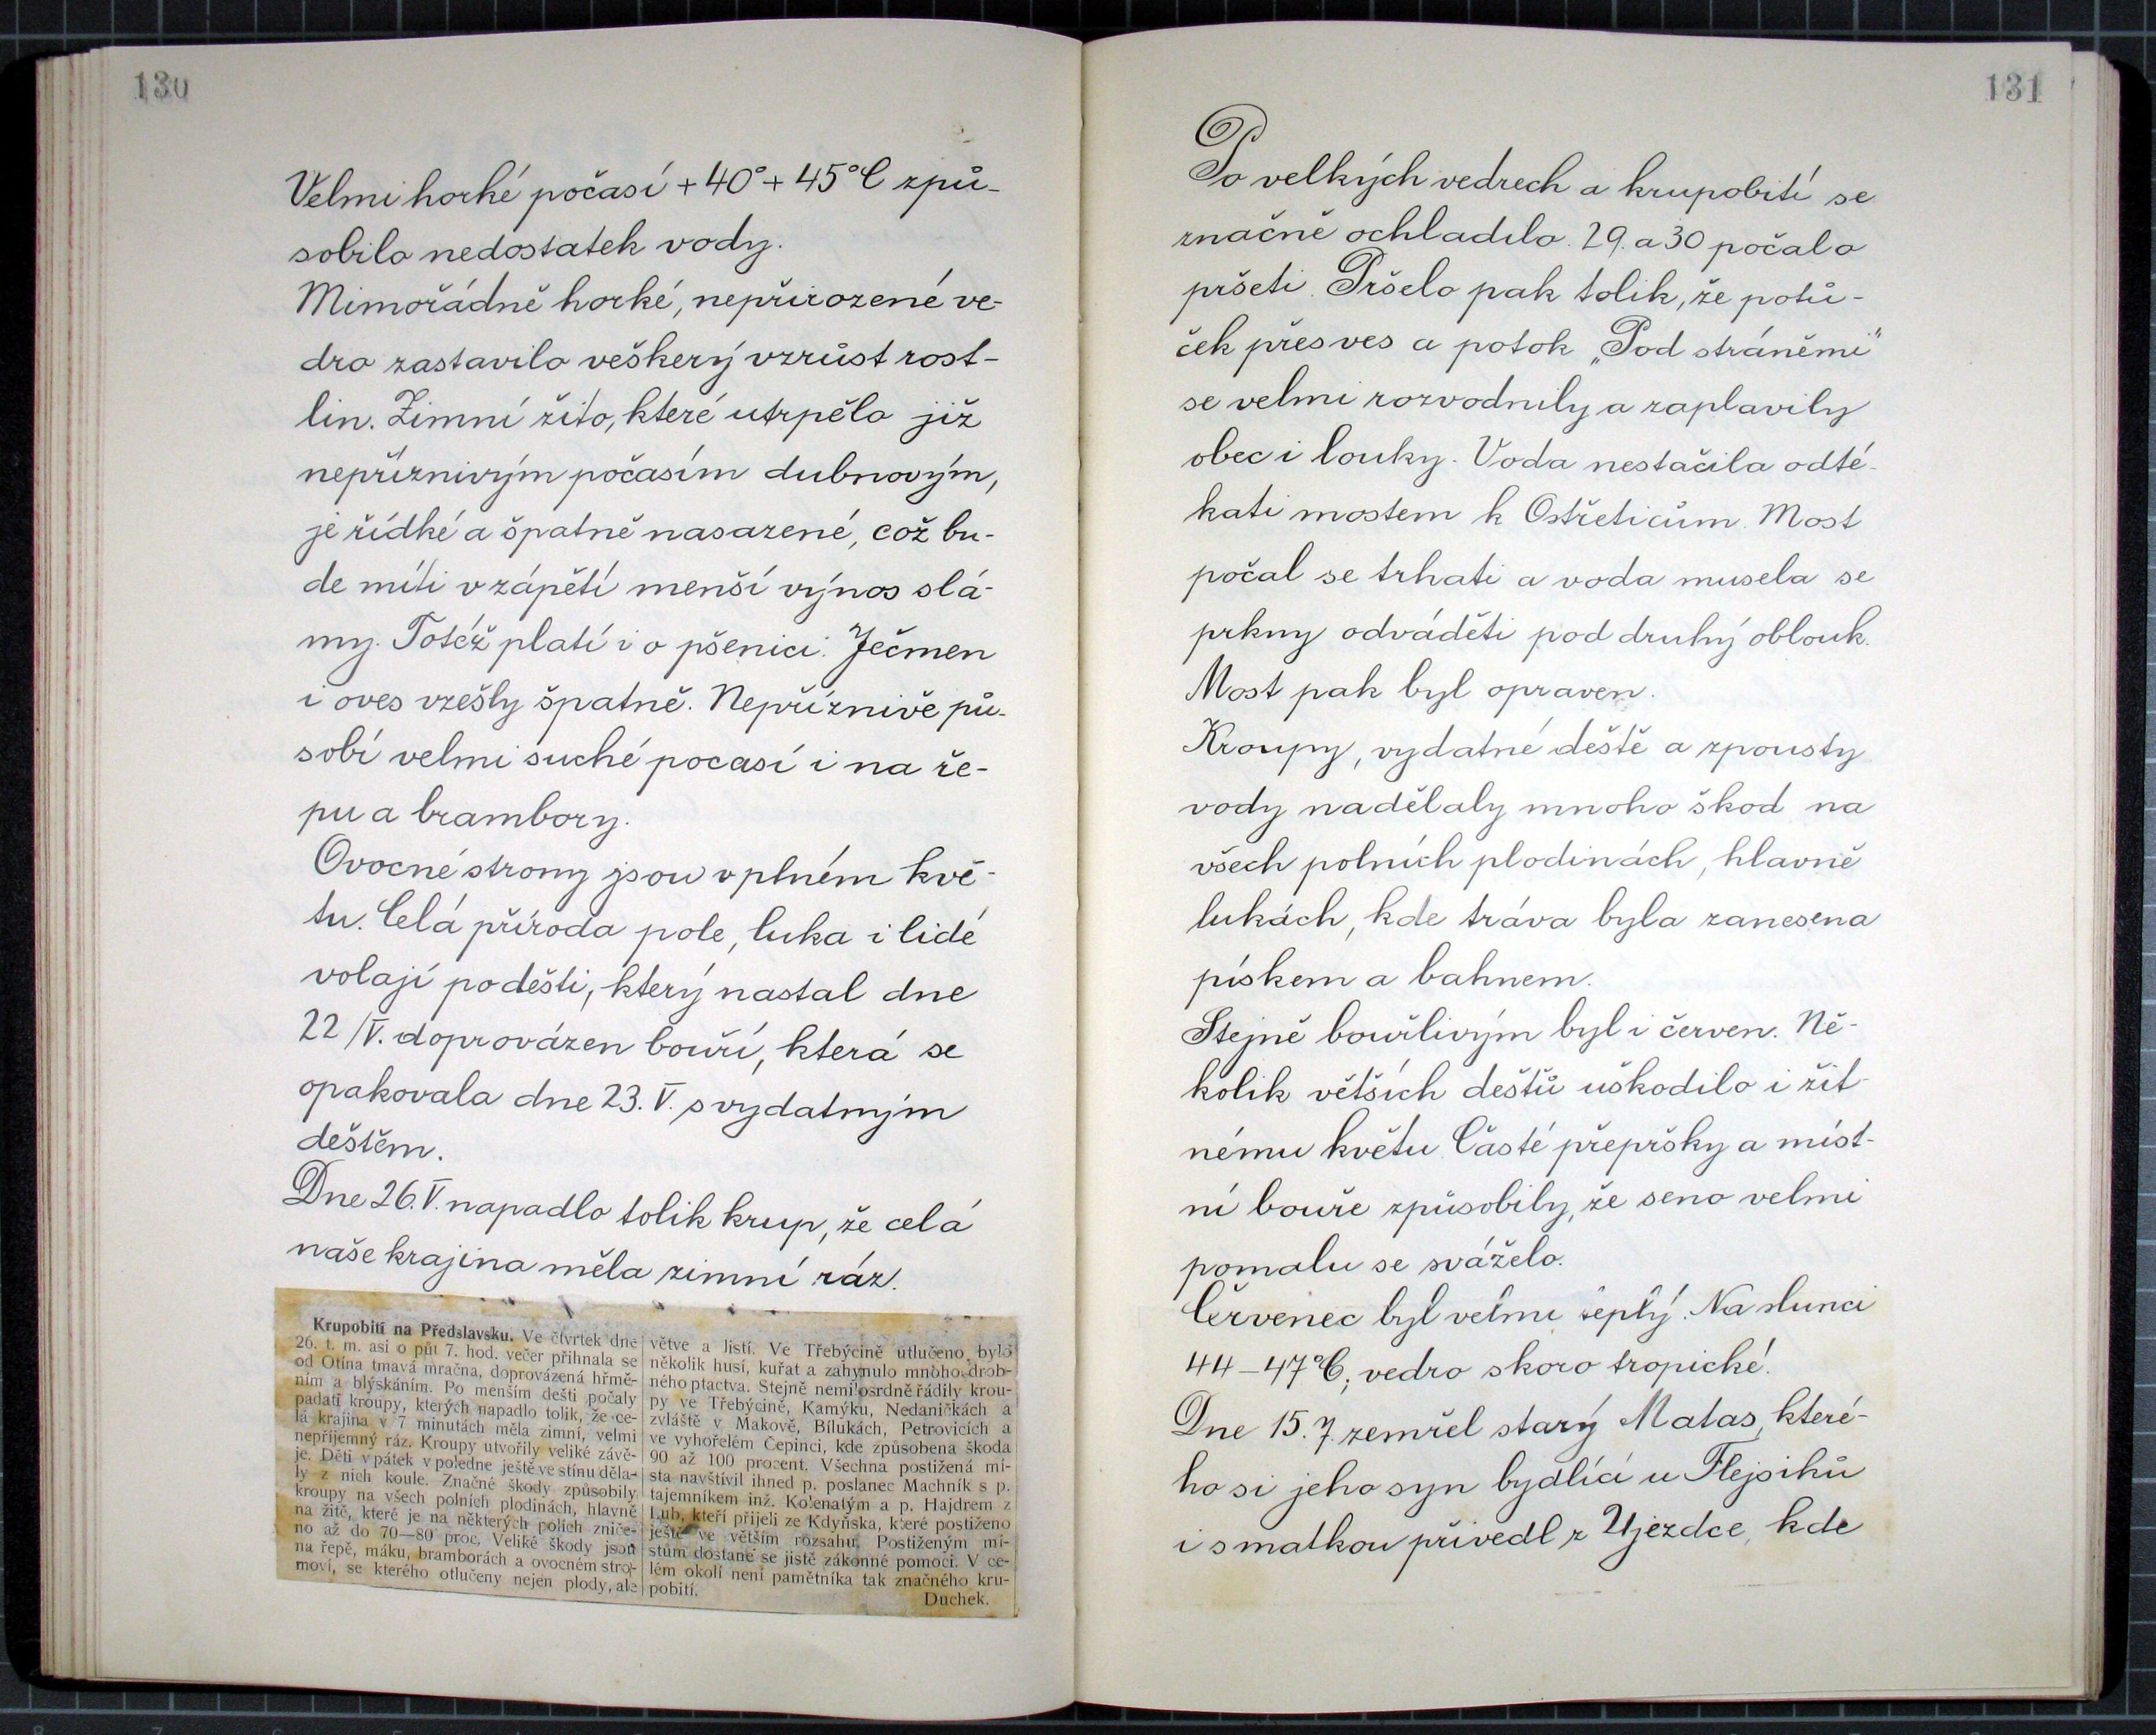 130
Velmi horké počasí +40° + 45°C způ-
sobilo nedostatek vody.
Mimořádně horké, nepřirozené ve-
dro zastavilo veškerý vzrůst rost-
lin. Zimní žito, které utrpělo již
nepříznivým počasím dubnovým,
je řídké a špatně nasazené, což bu-
de míti v zápětí menší výnos slá-
my. Totéž platí i o pšenici. Ječmen
i oves vzešly špatně. Nepříznivě pů-
sobí velmi suché pocasí i na ře-
pu a brambory.
Ovocné stromy jsou v plném kvě-
tu. Celá příroda pole, luka i lidé
volají po dešti, který nastal dne
22/V. doprovázen bouří, která se
opakovala dne 23. V. s vydatným
deštěm.
Dne 26. V. napadlo tolik krup, že celá
naše krajina měla zimní ráz.
Krupobití na Předslavsku. Ve čtvrtek dne
26. t. m. asi o půl 7. hod. večer přihnala se
od Otína tmavá mračna, doprovázená hřmě-
ním a blýskáním. Po menším dešti počaly
padati kroupy, kterých napadlo tolik, že ce-
lá krajina v 7 minutách měla zimní, velmi
nepříjemný ráz. Kroupy utvořily veliké závě-
je. Děti v pátek v poledne ještě ve stínu děla-
ly z nich koule. Značné škody způsobily
kroupy na všech polních plodinách, hlavně
na žitě, které je na některých polích zniče-
no až do 70—80 proc. Veliké škody jsou
na řepě, máku, bramborách a ovocném stro-
moví, se kterého otlučeny nejen plody, ale
větve a listí. Ve Třebýcině utlučeno bylo
několik husí, kuřat a zahynulo mnoho drob-
ného ptactva. Stejně nemilosrdně řádily krou-
py ve Třebýcině, Kamýku, Nedaničkách a
zvláště v Makově, Bílukách, Petrovicích a
ve vyhořelém Čepinci, kde způsobena škoda
90 až 100 procent. Všechna postižená mí-
sta navštívil ihned p. poslanec Machník s p.
tajemníkem inž. Kolenatým a p. Hajdrem z
Lub, kteří přijeli ze Kdyňska, které postiženo
ještě ve větším rozsahu. Postiženým mí-
stům dostane se jistě zákonné pomoci. V ce-
lém okolí není pamětníka tak značného kru-
pobití.
Duchek.
131
Po velkých vedrech a krupobití se
značně ochladilo. 29. a 30 počalo
pršeti. Pršelo pak tolik, že potů-
ček přes ves a potok „Pod stráněmi"
se velmi rozvodnily a zaplavily
obec i louky. Voda nestačila odté-
kati mostem k Ostřeticům. Most
počal se trhati a voda musela se
prkny odváděti pod druhý oblouk.
Most pak byl opraven.
Kroupy, vydatné deště a spousty
vody nadělaly mnoho škod na
všech polních plodinách, hlavně
lukách, kde tráva byla zanesena
pískem a bahnem.
Stejně bouřlivým byl i červen. Ně-
kolik větších deštů uškodilo i žit-
nému květu. Časté přepršky a míst-
ní bouře způsobily, že seno velmi
pomalu se sváželo.
Červenec byl velmi teplý. Na slunci
44–47°C, vedro skoro tropické.
Dne 15. 7. zemřel starý Matas, které-
ho si jeho syn bydlící u Flejsiků
i s matkou přivedl z Újezdce, kde